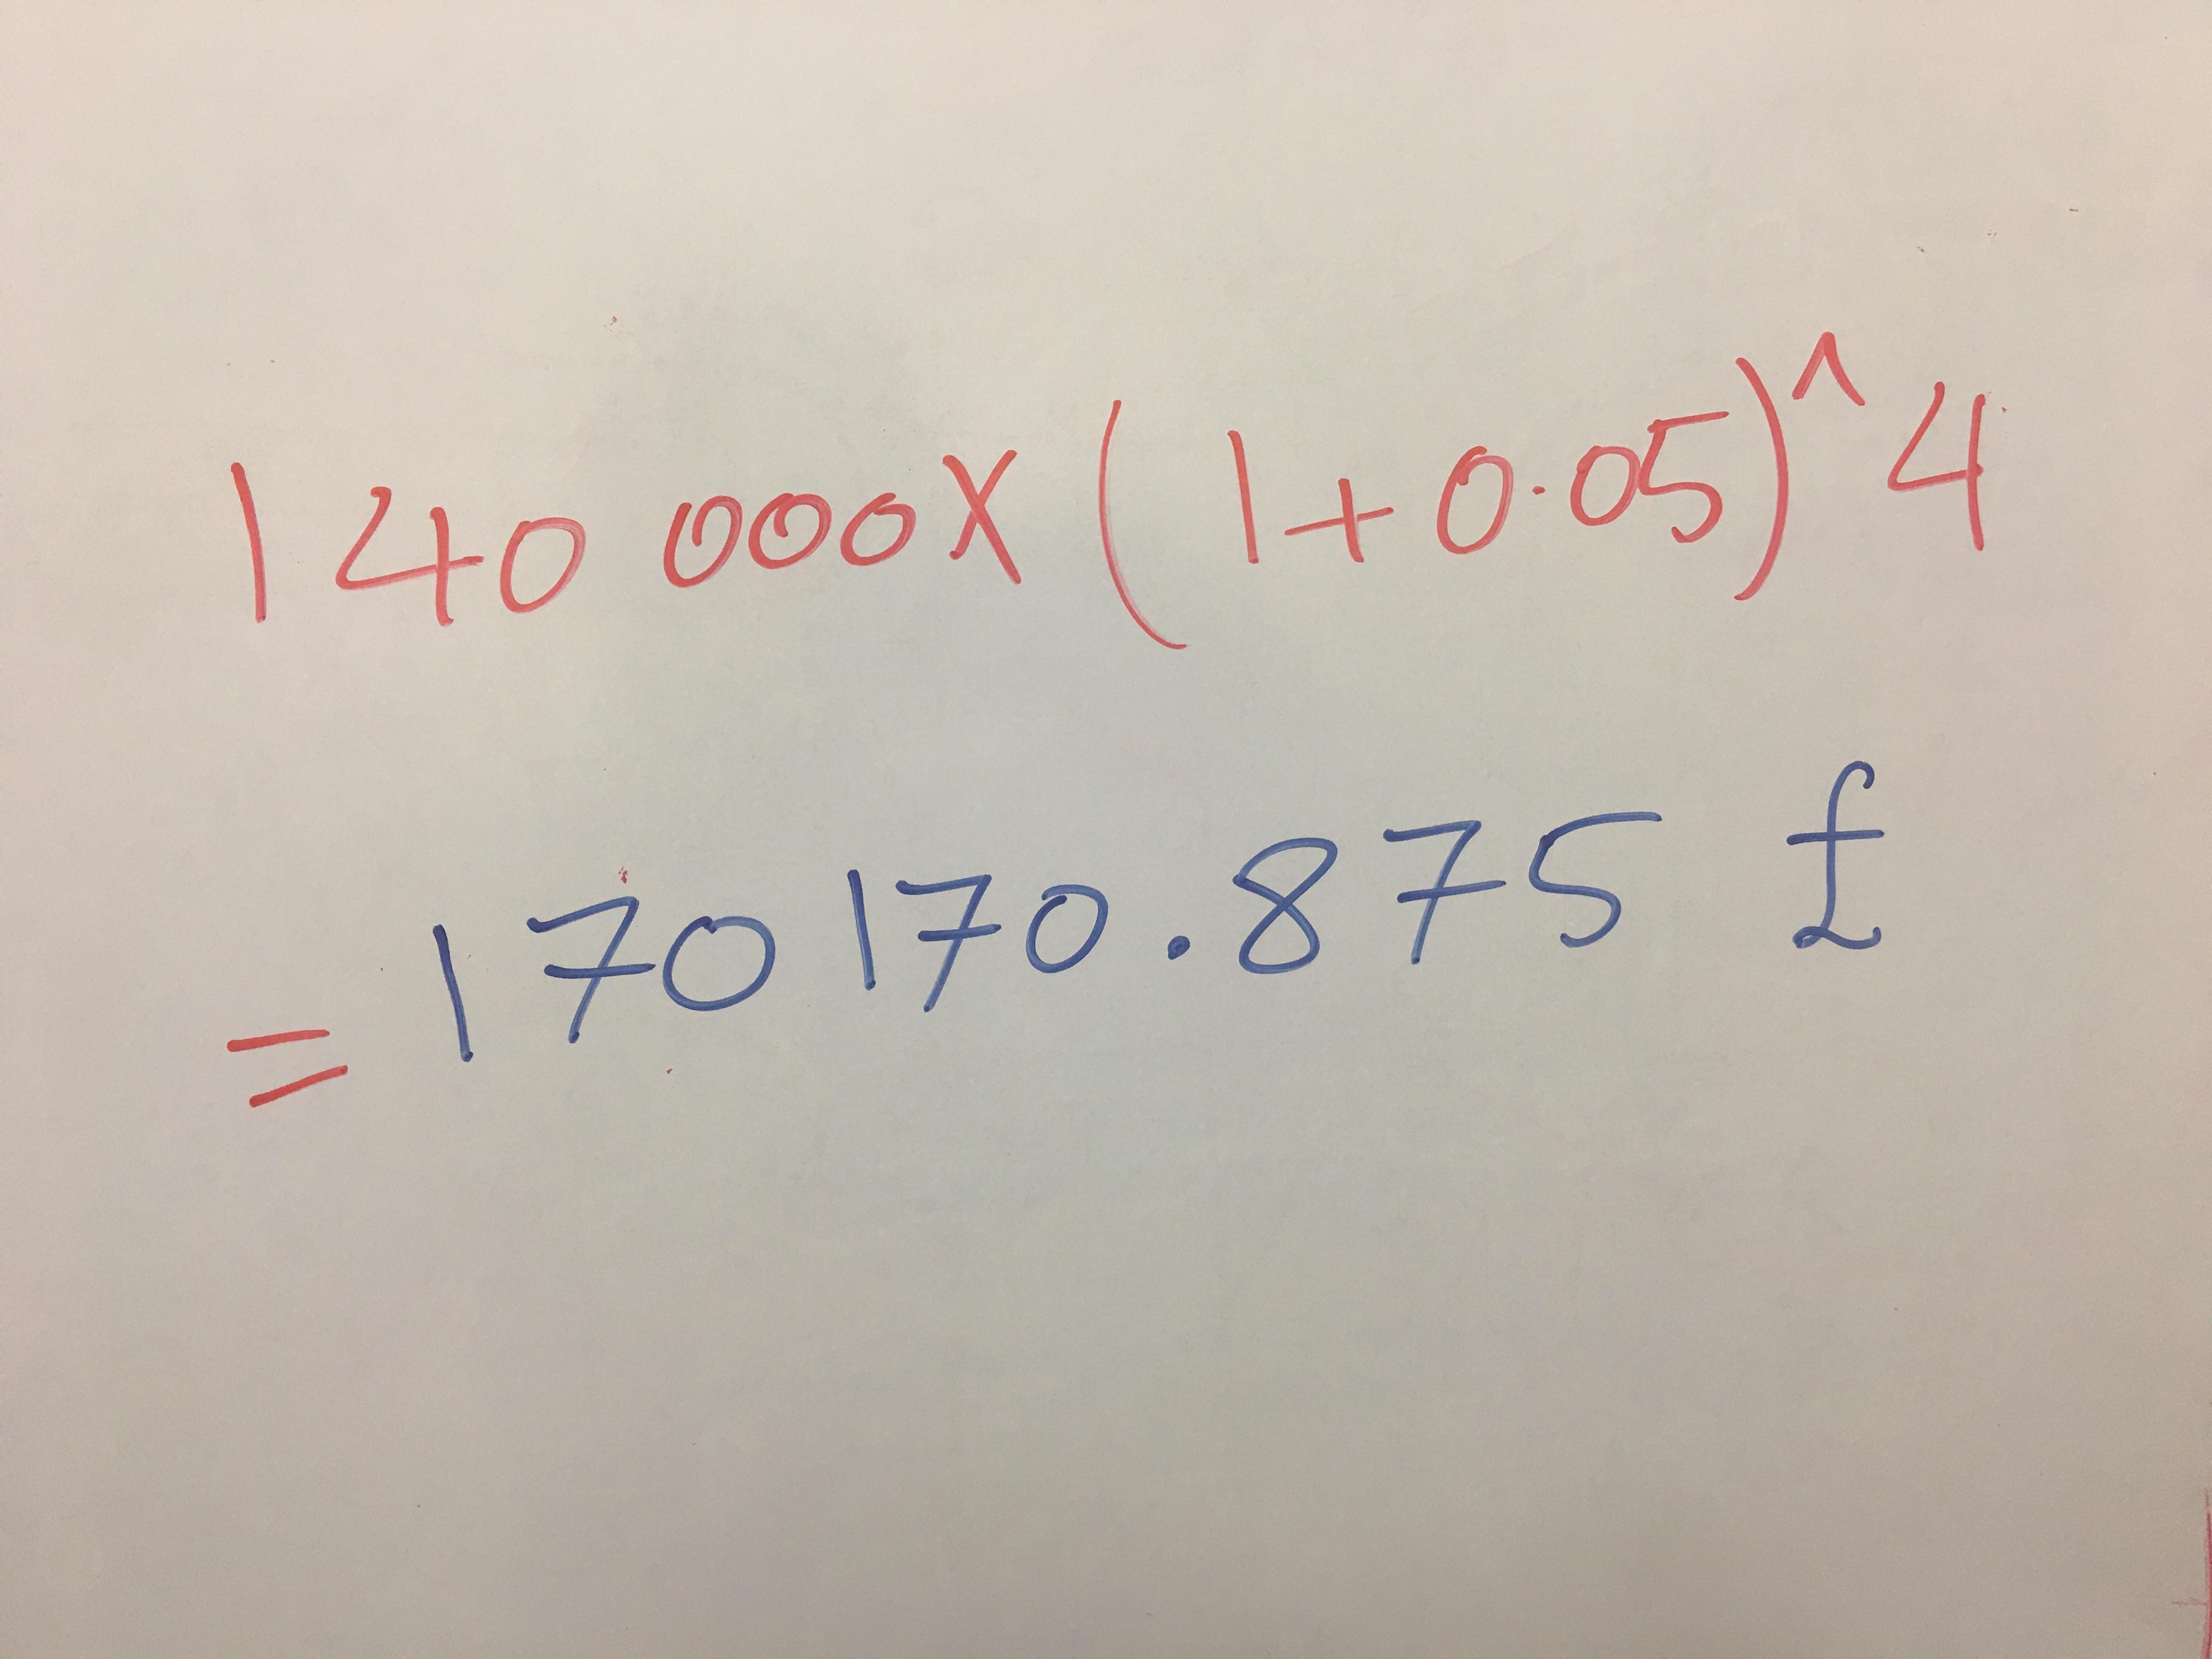 140 000X(1+0.05)^4
=170170.875 £